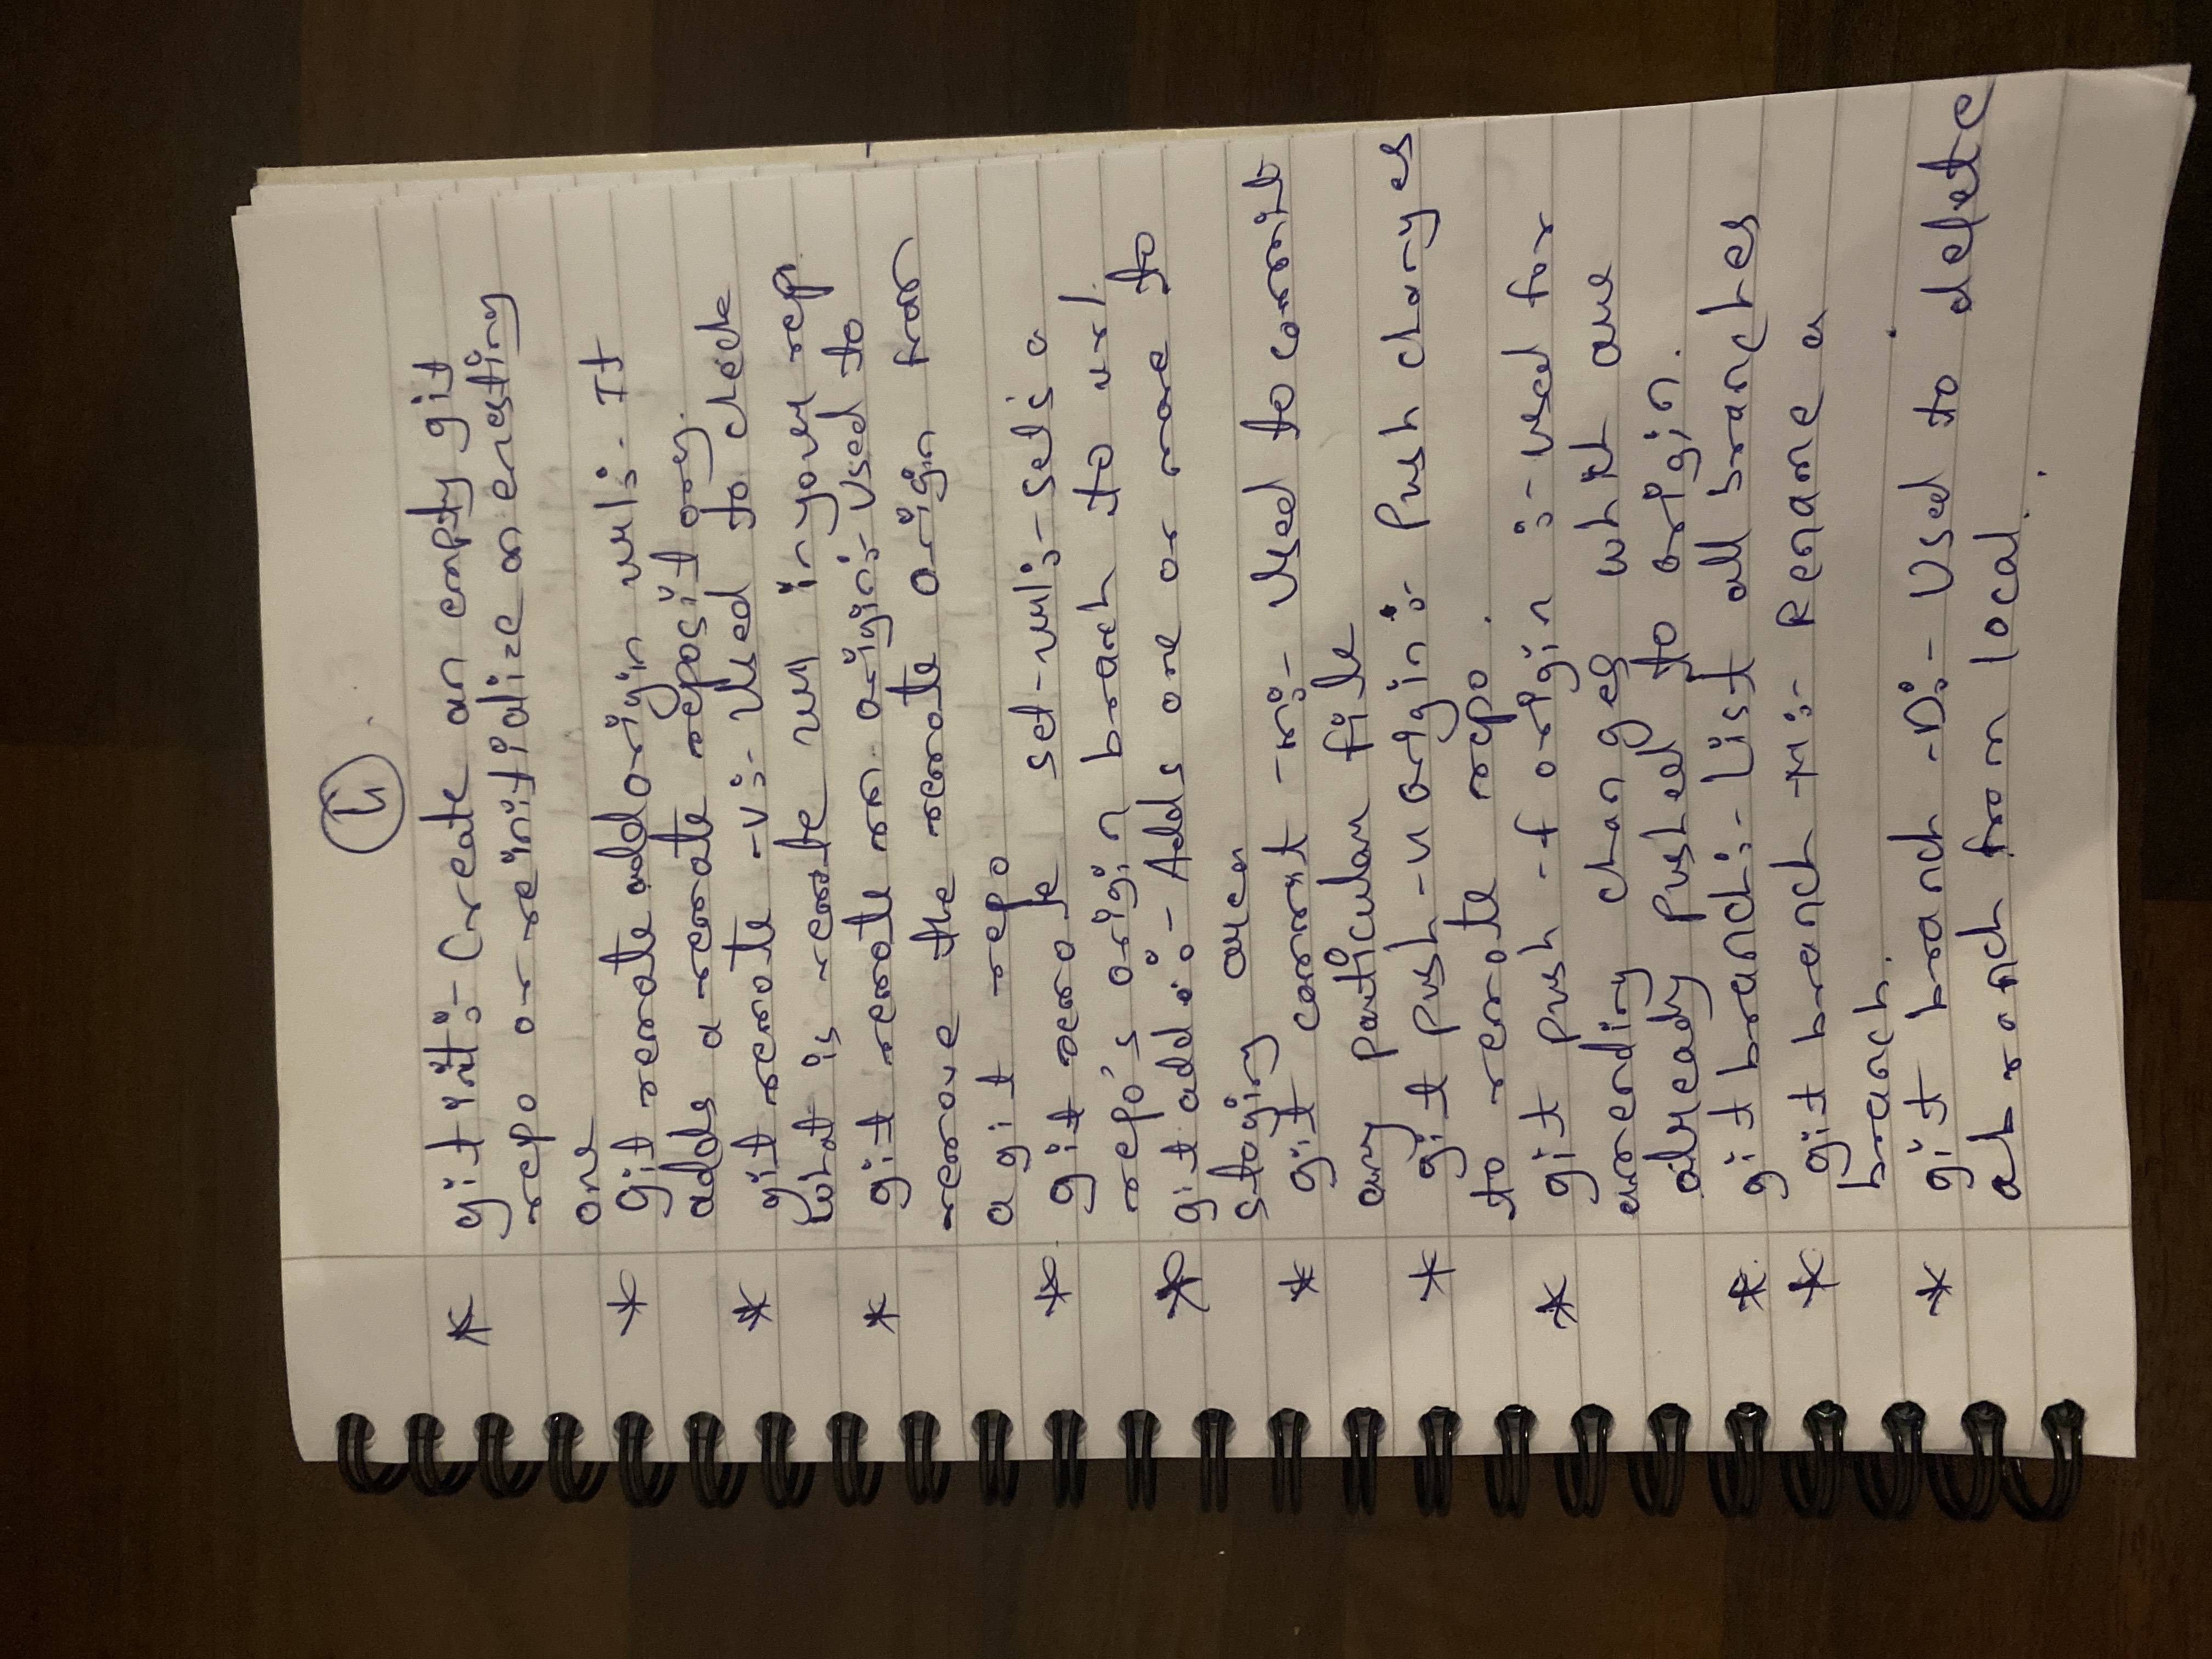 4
* git init:- Create an empty git
repo or reinitialize an existing
one
* Git remote add origin url:- It
adds a remote repository.
* git remote -v:- Used to check
what is remote url in your repo
* git remote rm origin:- Used to
remove the remote origin from
a git repo
* git remote set-url:- sets a
repo's origin branch to url.
* git add . :- Adds one or more to
staging area
* git commit -m:- Used to commit
any particular file
* git push -u origin :- Push changes
to remote repo.
* git push -f origin :- used for
amending changes which are
already pushed to origin.
* git branch:- List all branches
* git branch -M:- Rename a
branch.
* git branch -D:- Used to delete
a branch from local.